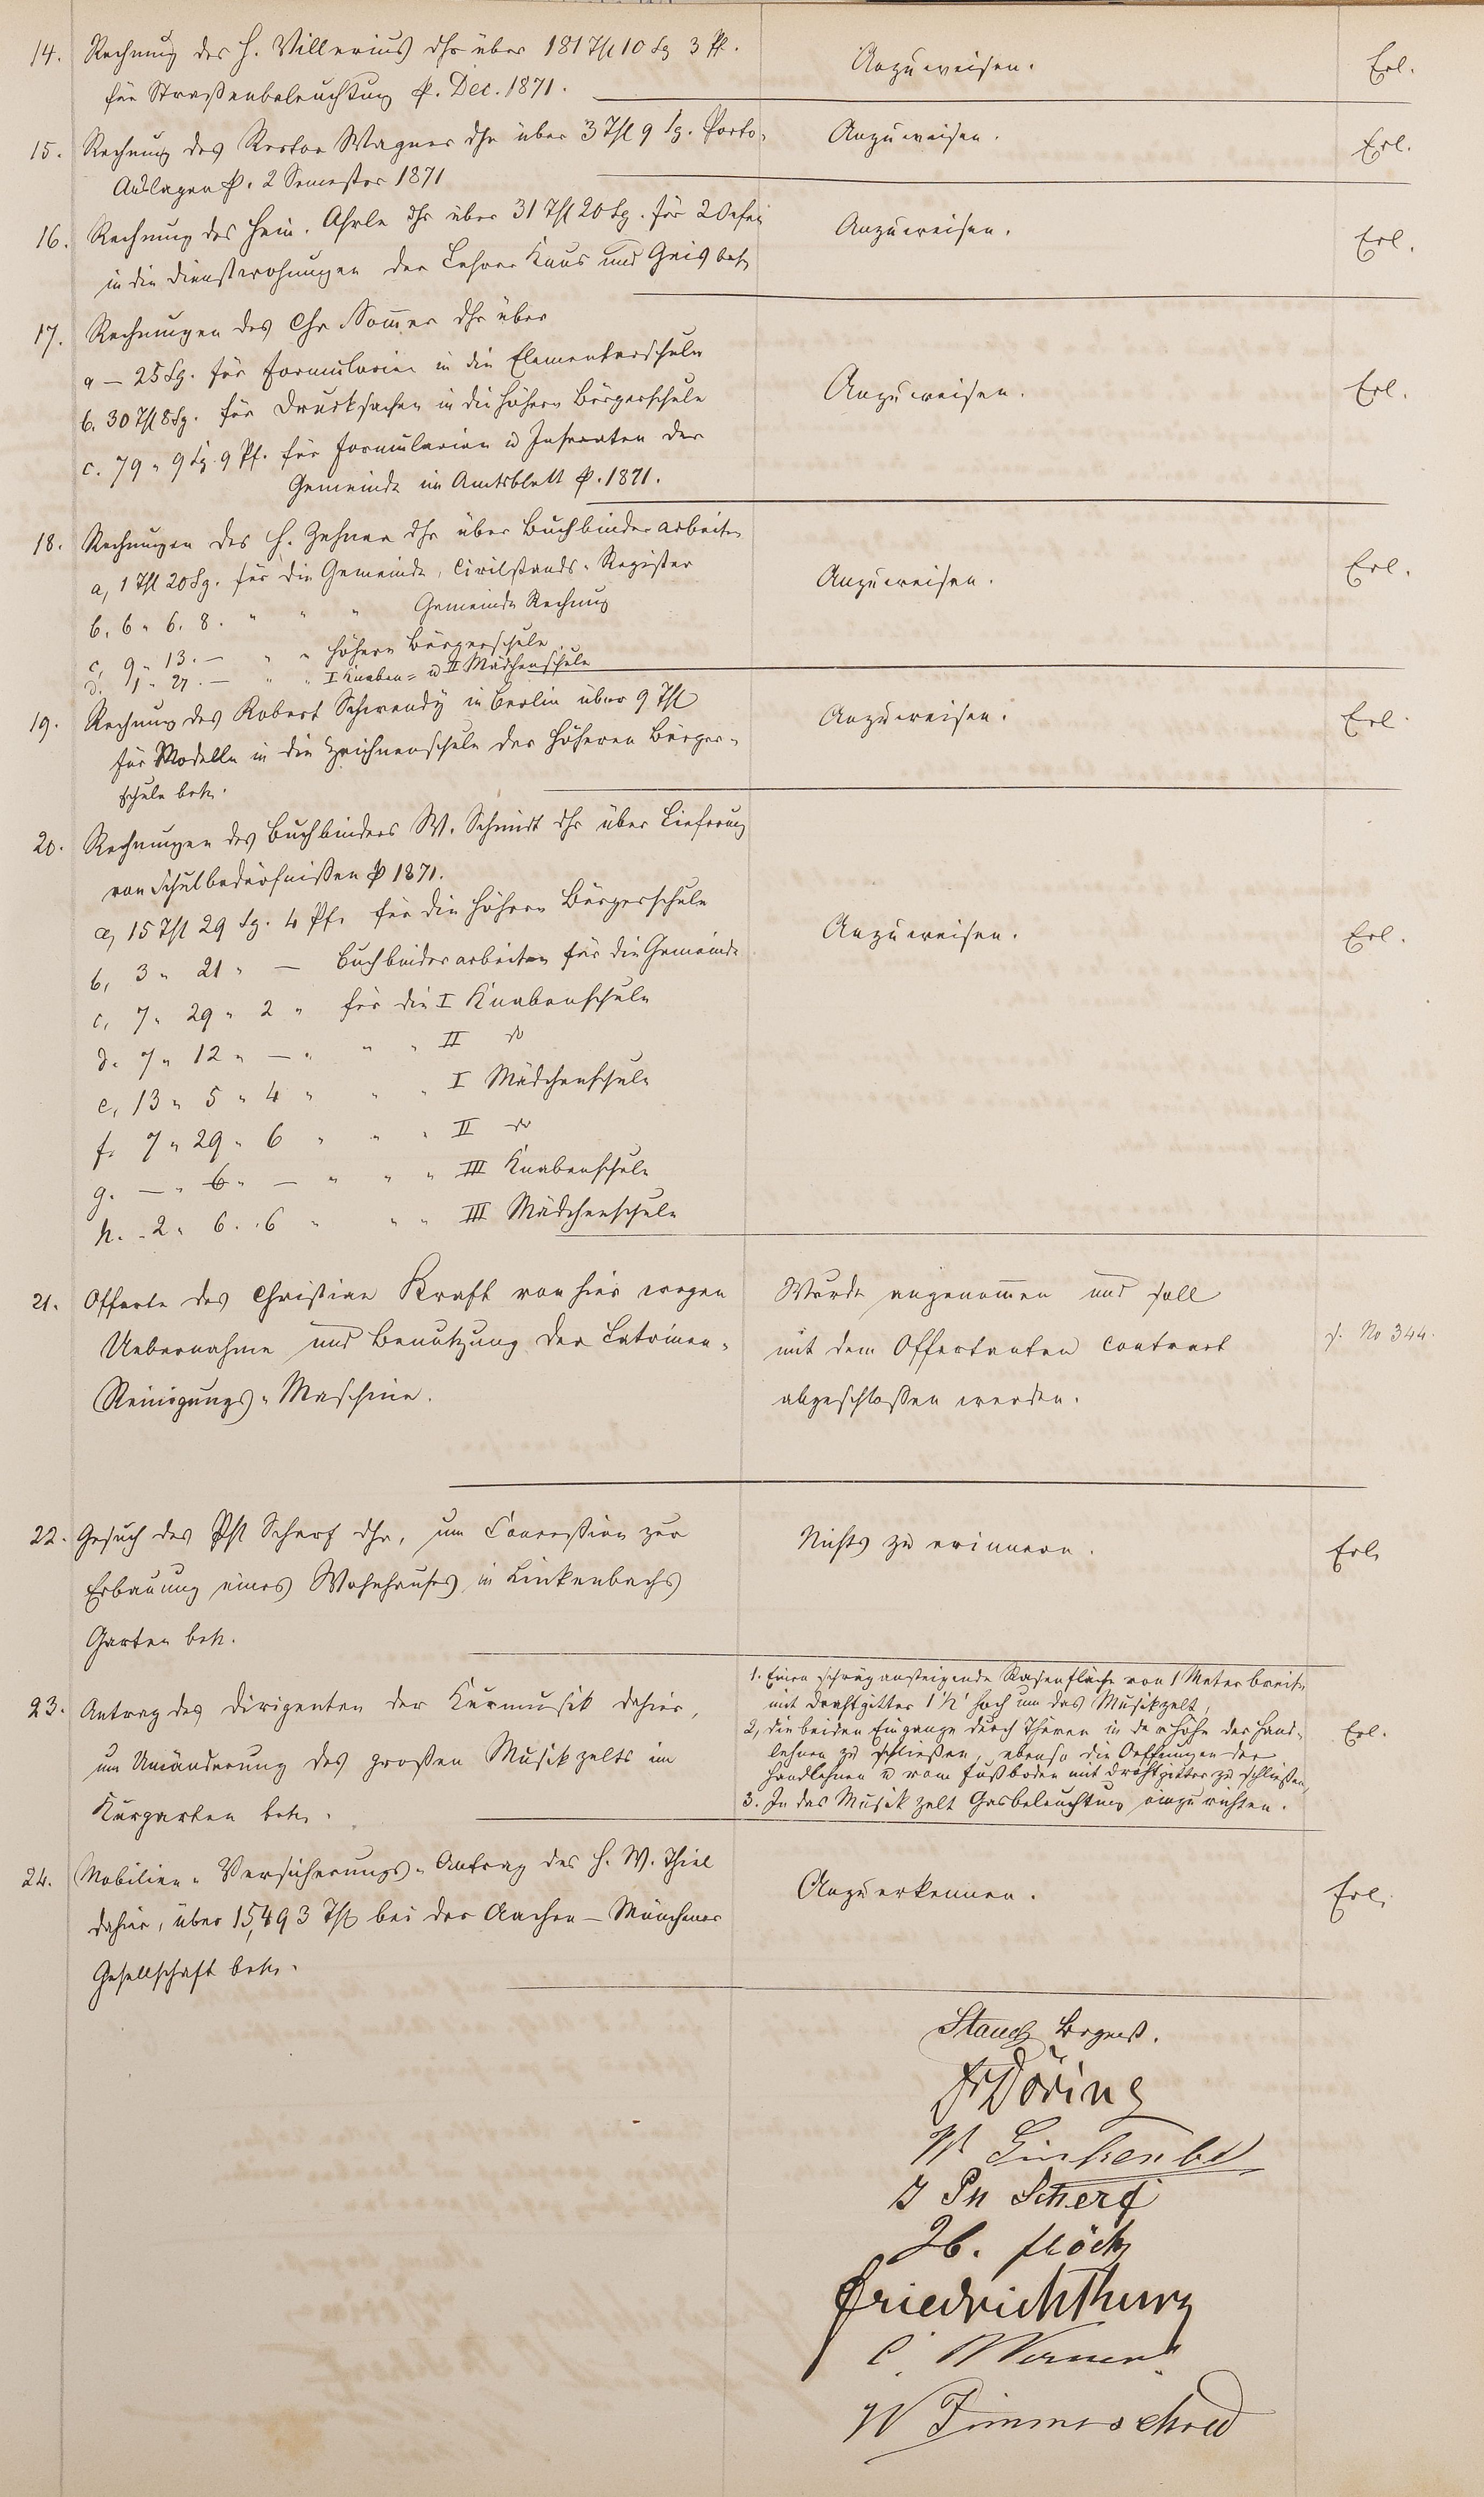 14. Rechnung des H. Villerius dhr über 181 Thl 10 Sg 3 Pf.
für Straßenbeleuchtung p. Dec. 1871.
Anzuweisen.
Erl.
15. Rechnung des Rector Wagner dhr über 3 Thl 9 Sg. Porto-
Auslagen p. 2 Semester 1871
Anzuweisen.
Erl.
16. Rechnung des Hein. Ahrle dhr über 31 Thl 20 Sg. für 2 Oefen
in die Dienstwohnungen der Lehrer Knus und Geis betr
Anzuweisen.
Erl.
17. Rechnungen des Chr Sommer dhr über
a — 25 Sg. für Formularien in die Elementarschule
b. 30 Thl 8 Sg. für Drucksachen in die höhere Bürgerschule
c. 79 " 9 Sg. 9 Pf. für Formularien u Inseraten der
Gemeinde im Amtsblatt p. 1871.
Anzuweisen.
Erl.
18. Rechnungen des H. Zehner dhr über Buchbinderarbeiten
a, 1 Thl 20 Sg. für die Gemeinde, Civilstands-Register
b. 6 " 6. 8. " " " Gemeinde Rechnung
c, 9 " 13. — " " höhere Bürgerschule
d. 1 " 27. — " " I Knaben- u II Mädchenschule
Anzuweisen.
Erl.
19. Rechnung des Robert Schwendy in Berlin über 9 Thl
für Modelle in die Zeichnenschule der höheren Bürger-
schule betr.
Anzuweisen.
Erl
20. Rechnungen des Buchbinders W. Schmidt dhr über Lieferung
von Schulbedürfnißen p 1871.
a, 15 Thl 29 Sg. 4 Pf. für die höhere Bürgerschule
b, 3 " 21 " — Buchbinderarbeiten für die Gemeinde
c, 7 " 29 " 2 " für die I Knabenschule
d. 7 " 12 " — " " " II do
e, 13 " 5 " 4 " " " I Mädchenschule
f. 7 " 29 " 6 " " " II do
g. — " 6 " — " " " III Knabenschule
h. 2 " 6. 6 " " " III Mädchenschule
Anzuweisen.
Erl.
21. Offerte des Christian Kraft von hier wegen
Uebernahme und Benutzung der Latrinen-
Reinigungs-Maschine.
Wurde angenommen und soll
mit dem Offertanten Contract
abgeschloßen werden.
s. No 344.
22. Gesuch des Phl Scherf dhr, um Concession zur
Erbauung eines Wohnhauses in Linkenbachs
Garten betr.
Nichts zu erinnern.
Erl.
23. Antrag des Dirigenten der Kurmusik dahier,
um Umänderung des großen Musikzelts im
Kurgarten betr.
1. Einen schräg ansteigende Rasenfläche von 1 Meter breite
mit Drahtgitter 1 1/2' hoch um das Musikzelt,
2, die beiden Eingange durch Thüren in der Höhe der Hand-
lehnen zu schließen, ebenso die Oeffnungen der
Handlehnen u vom Fußboden mit Drahtgitter zu schließen,
3. In das Musikzelt Gasbeleuchtung einzurichten.
Erl.
24. Mobilien-Versicherungs-Antrag des H. W. Thiel
dahier, über 15,493 Thl bei der Aachen—Münchener
Gesellschaft betr.
Anzuerkennen.
Erl.
Stauch Brgmst.
Fr Döring
W Linkenb
J Ph Scherf
Jb. Flöck
Friedrich Thurn
C. Werner
W Zimmerschied